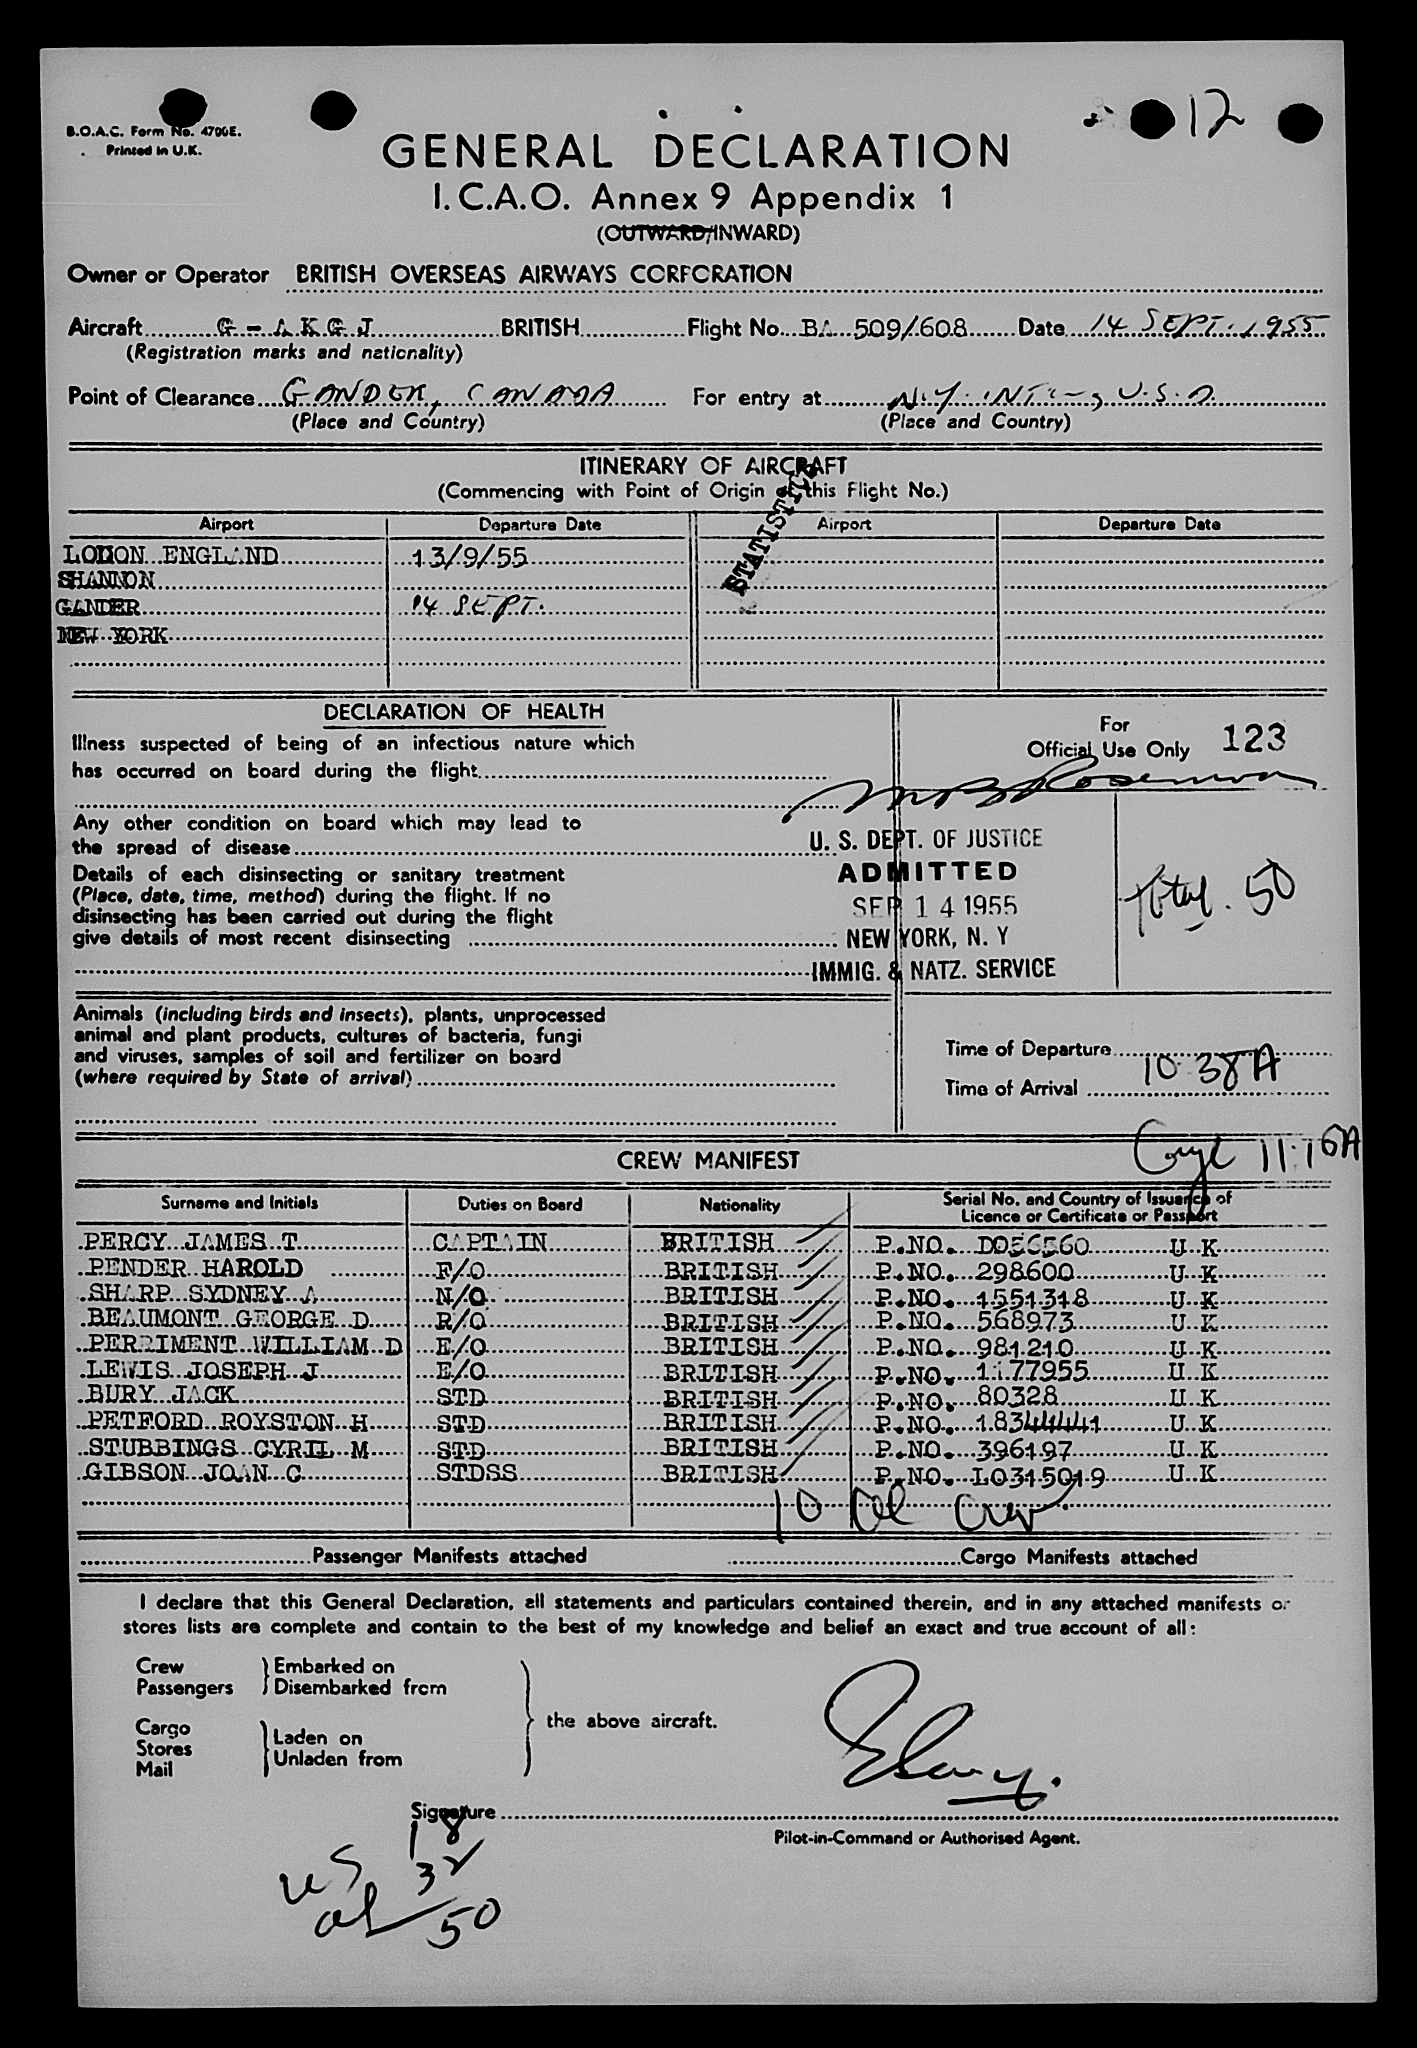 12
B.O.A.C. Form No. 4706E.
Printed in U.K.
GENERAL DECLARATION
I.C.A.O. Annex 9 Appendix 1
(OUTWARD/INWARD)
Owner or Operator BRITISH OVERSEAS AIRWAYS CORPORATION
Aircraft G-AKGJ BRITISH Flight No. BA 509/608 Date 14 SEPT. 1955
(Registration marks and nationality)
Point of Clearance GANDER, CANADA For entry at N.Y. INT'L, U.S.A.
(Place and Country) (Place and Country)
ITINERARY OF AIRCRAFT
(Commencing with Point of Origin of this Flight No.)
STATISTICS
Airport Departure Date Airport Departure Date
LONDON ENGLAND 13/9/55
SHANNON
GANDER 14 SEPT.
NEW YORK
DECLARATION OF HEALTH
Illness suspected of being of an infectious nature which
has occurred on board during the flight
Any other condition on board which may lead to
the spread of disease
Details of each disinsecting or sanitary treatment
(Place, date, time, method) during the flight. If no
disinsecting has been carried out during the flight
give details of most recent disinsecting
For
Official Use Only 123
U. S. DEPT. OF JUSTICE
ADMITTED
SEP 14 1955
NEW YORK, N. Y
IMMIG. & NATZ. SERVICE
Total. 50
Animals (including birds and insects), plants, unprocessed
animal and plant products, cultures of bacteria, fungi
and viruses, samples of soil and fertilizer on board
(where required by State of arrival)
Time of Departure
10 38A
Time of Arrival
11:16A
CREW MANIFEST
Surname and Initials Duties on Board Nationality Serial No. and Country of Issuance of
Licence or Certificate or Passport
PERCY JAMES T CAPTAIN BRITISH P.NO. D056560 U K
PENDER HAROLD F/O BRITISH P.NO. 298600 U K
SHARP SYDNEY A N/O BRITISH P.NO. 1551318 U K
BEAUMONT GEORGE D R/O BRITISH P.NO. 568973 U K
PERRIMENT WILLIAM D E/O BRITISH P.NO. 981210 U K
LEWIS JOSEPH J E/O BRITISH P.NO. 1177955 U K
BURY JACK STD BRITISH P.NO. 80328 U K
PETFORD ROYSTON H STD BRITISH P.NO. 1834441 U K
STUBBINGS CYRIL M STD BRITISH P.NO. 396197 U K
GIBSON JOAN C STDSS BRITISH P.NO. LO315019 U K
10 al Crew
Passenger Manifests attached Cargo Manifests attached
I declare that this General Declaration, all statements and particulars contained therein, and in any attached manifests or
stores lists are complete and contain to the best of my knowledge and belief an exact and true account of all:
Crew Embarked on
Passengers Disembarked from
the above aircraft.
Cargo
Stores Laden on
Mail Unladen from
Signature
Pilot-in-Command or Authorised Agent.
US 18
al 32
50